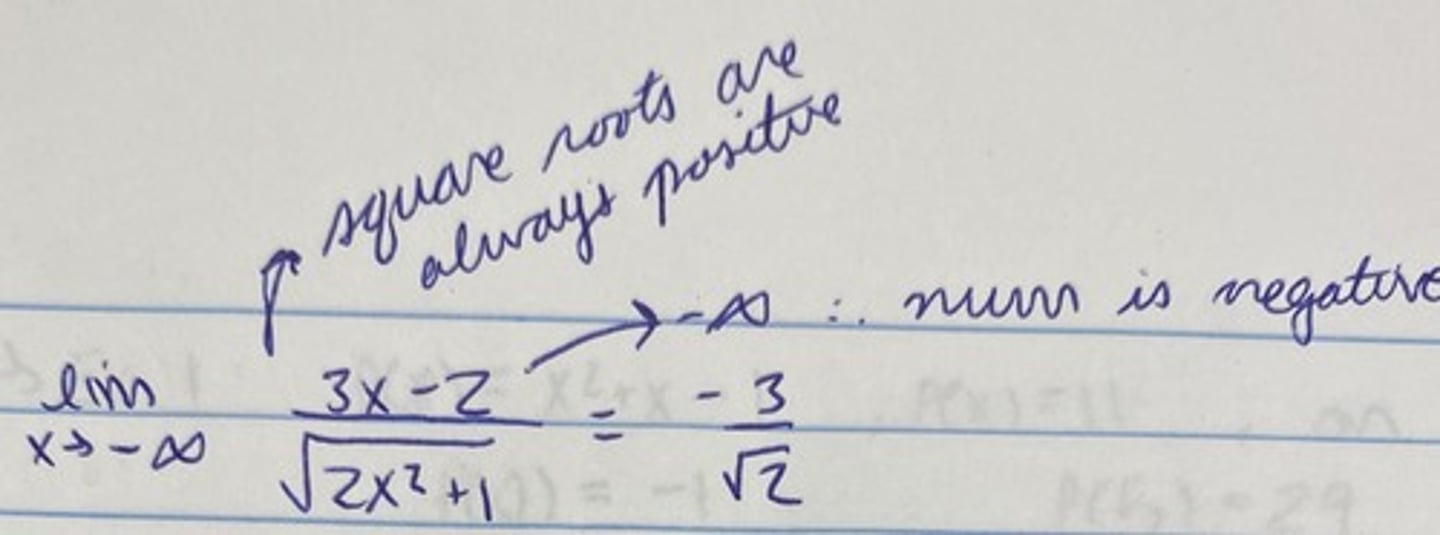 square roots are
always positive
-∞ ∴ num is negative
lim x→-∞ (3x-2)/√(2x²+1) = -3/√2